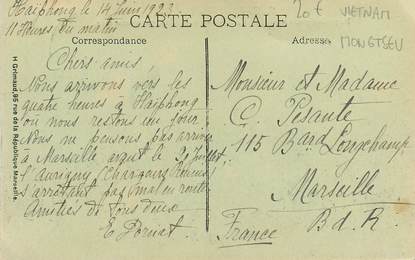 Haiphong le 14 Juin 1923
11 Heures du matin
CARTE POSTALE
20€ VIETNAM
MONGTSEU
Correspondance
Adresse
H Grimaud, 95 rue de la République Marseille.
Chers amis,
Nous arrivons vers les
quatre heures à Haiphong
où nous restons un jour.
Nous ne pensons pas arriver
à Marseille avant le 20 Juillet.
L'Aurigny (Chargeurs Réunis)
s'arrêtant pas mal en route
Amitiés de tous deux
Monsieur et Madame
C. Pesante
115 Bard Longchamp
Marseille
B. d. R.
France